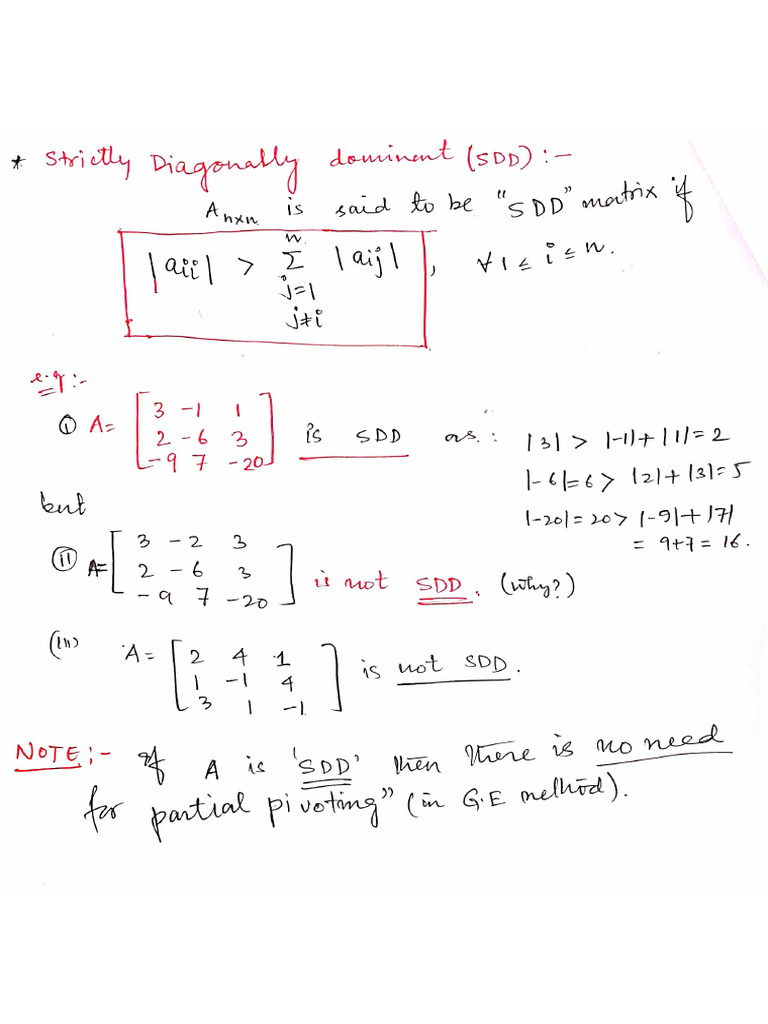 * Strictly Diagonally dominant (SDD) :-
A_{n×n} is said to be "SDD" matrix if
|a_{ii}| > \sum_{j=1, j≠i}^{n} |a_{ij}| , ∀ 1 ≤ i ≤ n.
e.g :-
(i) A= [3 -1 1; 2 -6 3; -9 7 -20] is SDD as : |3| > |-1| + |1| = 2
|-6| = 6 > |2| + |3| = 5
|-20| = 20 > |-9| + |7|
= 9+7 = 16.
but
(ii) A= [3 -2 3; 2 -6 3; -9 7 -20] is not SDD. (Why?)
(iii) A= [2 4 1; 1 -1 4; 3 1 -1] is not SDD.
NOTE :- If A is 'SDD' then there is no need
for partial pivoting" (in G.E method).